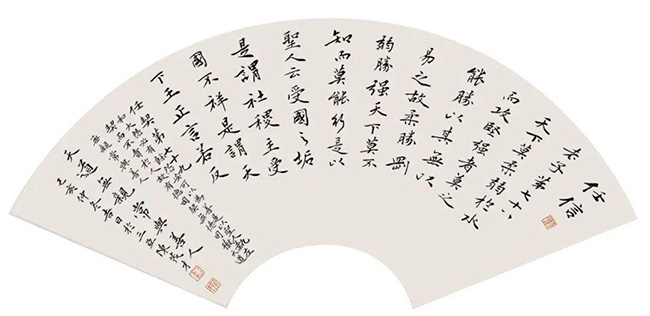 任信
老子第七十八
天下莫柔弱於水
而攻堅强者莫之
能勝以其無以
易之故柔勝剛
弱勝强天下莫不
知而莫能行是以
聖人云受國之垢
是謂社稷主受
國不祥是謂天
下王正言若反
任契第七十九
天道無親常與善人
己亥仲冬吉日於三立陳茂才